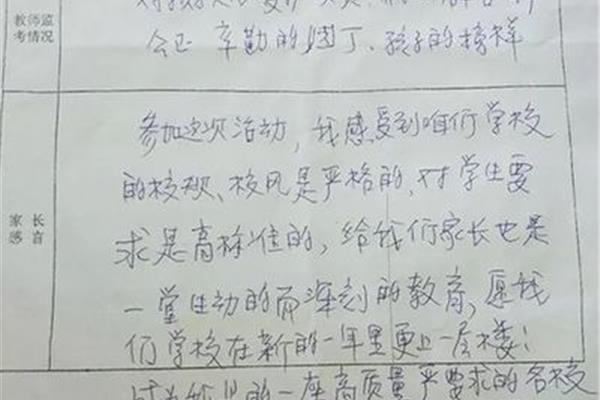 教师监
考情况
会正 辛勤的园丁、孩子的榜样
家长
感言
参加这次活动,我感受到咱们学校
的校规、校风是严格的,对学生要
求是高标准的,给我们家长也是
一堂生动的而深刻的教育,愿我
们学校在新的一年里更上一层楼!
的一座高质量严要求的名校